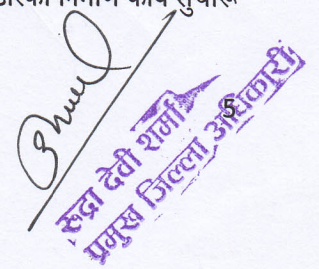 निर्माण कार्य सुचारु
5
रुद्रा देवी शर्मा
प्रमुख जिल्ला अधिकारी